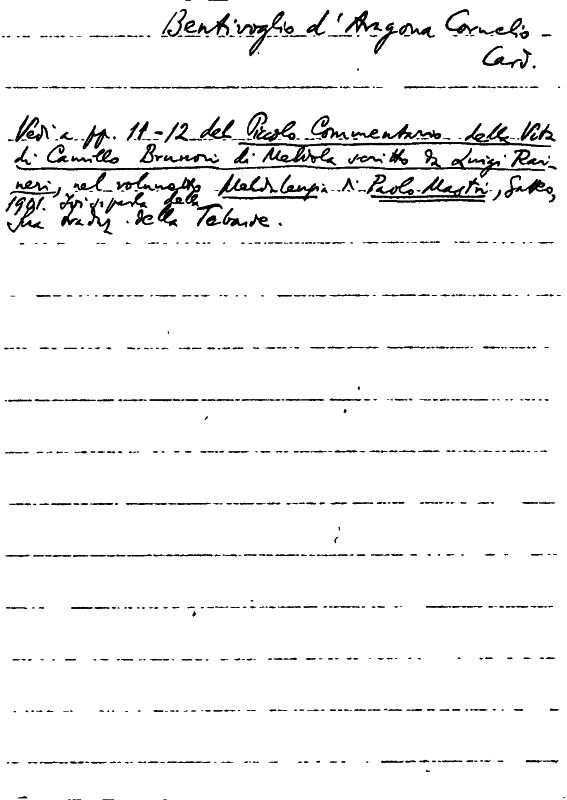 Bentivoglio d'Aragona Cornelio
Card.
Vedi a pp. 11-12 del Piccolo Commentario della Vita
di Camillo Brunori di Meldola scritto da Luigi Rai-
neri, nel volumetto Meldulensia di Paolo Mastri,
1901. Ivi si parla della
sua traduz. della Tebaide.